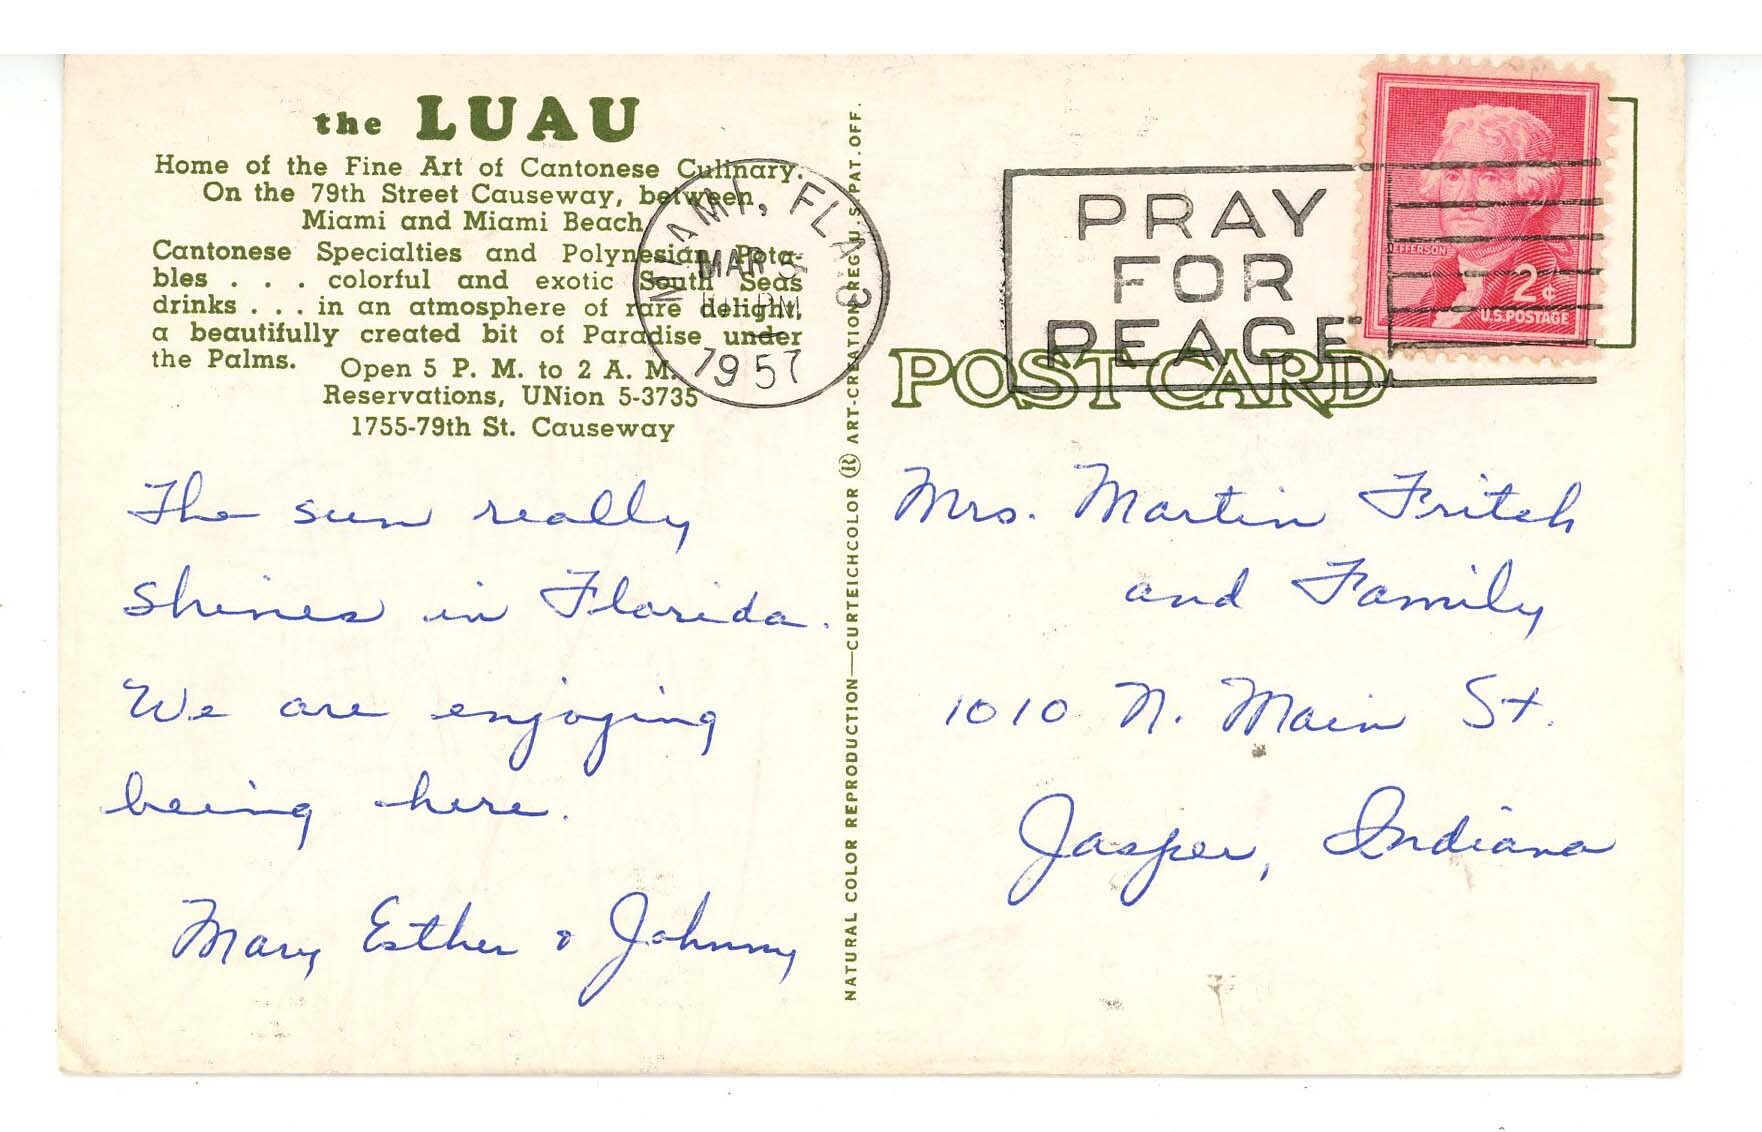 the LUAU
Home of the Fine Art of Cantonese Culinary.
On the 79th Street Causeway, between
Miami and Miami Beach
Cantonese Specialties and Polynesian Pota-
bles . . . colorful and exotic South Seas
drinks . . . in an atmosphere of rare delight,
a beautifully created bit of Paradise under
the Palms.
Open 5 P. M. to 2 A. M.
Reservations, UNion 5-3735
1755-79th St. Causeway
The sun really
shines in Florida.
We are enjoying
being here.
Mary Esther & Johnny
MIAMI, FLA.
MAR 5
PM
1957
NATURAL COLOR REPRODUCTION—CURTEICHCOLOR ® ART-CREATION REG. U.S. PAT. OFF.
PRAY
FOR
PEACE
JEFFERSON
2¢
U.S. POSTAGE
POST CARD
Mrs. Martin Fritch
and Family
1010 N. Main St.
Jasper, Indiana